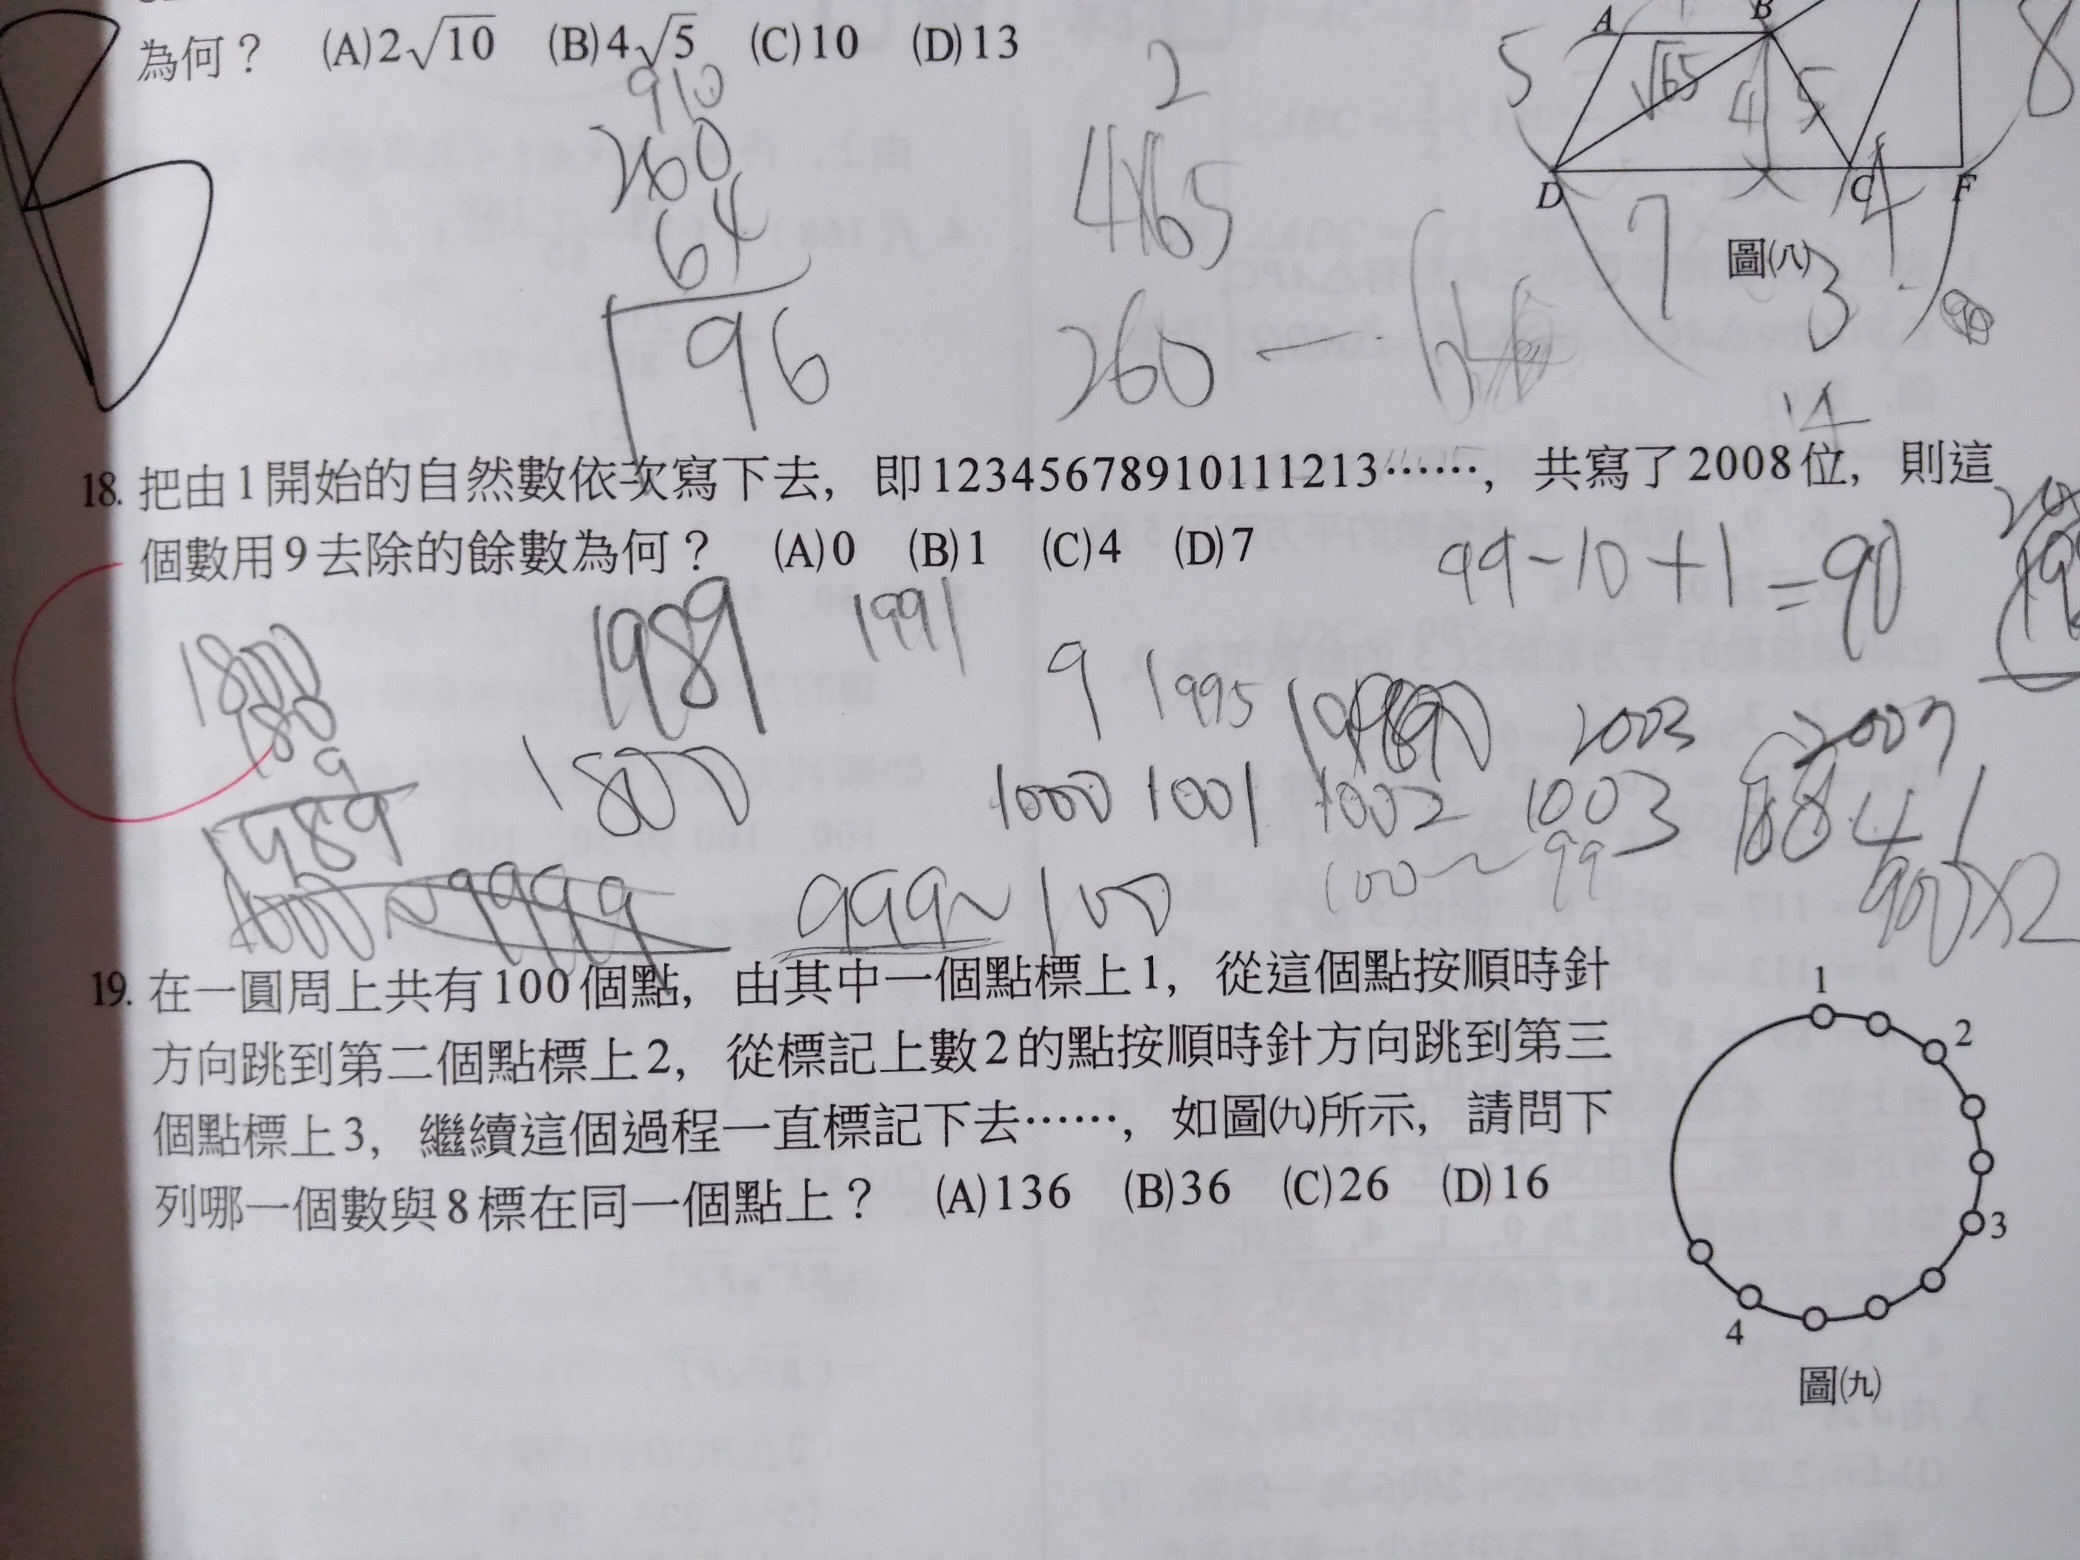 為何？ (A)2√10 (B)4√5 (C)10 (D)13
A B
5 √65 4 5 8
D C F
7 3 4
圖(八)
910
260
64
196
2
4×65
260 -
14
18. 把由1開始的自然數依次寫下去，即12345678910111213……，共寫了2008位，則這
個數用9去除的餘數為何？ (A)0 (B)1 (C)4 (D)7
99-10+1=90
1989 1991
1800
180
9
1989
9 1995 2003 2007
1800
1000 1001 1002 1003
100~99
9999 999~100
19. 在一圓周上共有100個點，由其中一個點標上1，從這個點按順時針
方向跳到第二個點標上2，從標記上數2的點按順時針方向跳到第三
個點標上3，繼續這個過程一直標記下去……，如圖(九)所示，請問下
列哪一個數與8標在同一個點上？ (A)136 (B)36 (C)26 (D)16
1
2
3
4
圖(九)